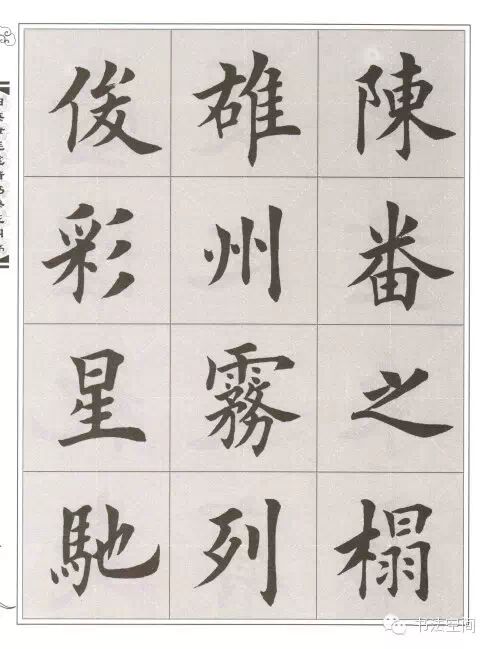 陳番之榻
雄州霧列
俊彩星馳
书法空间